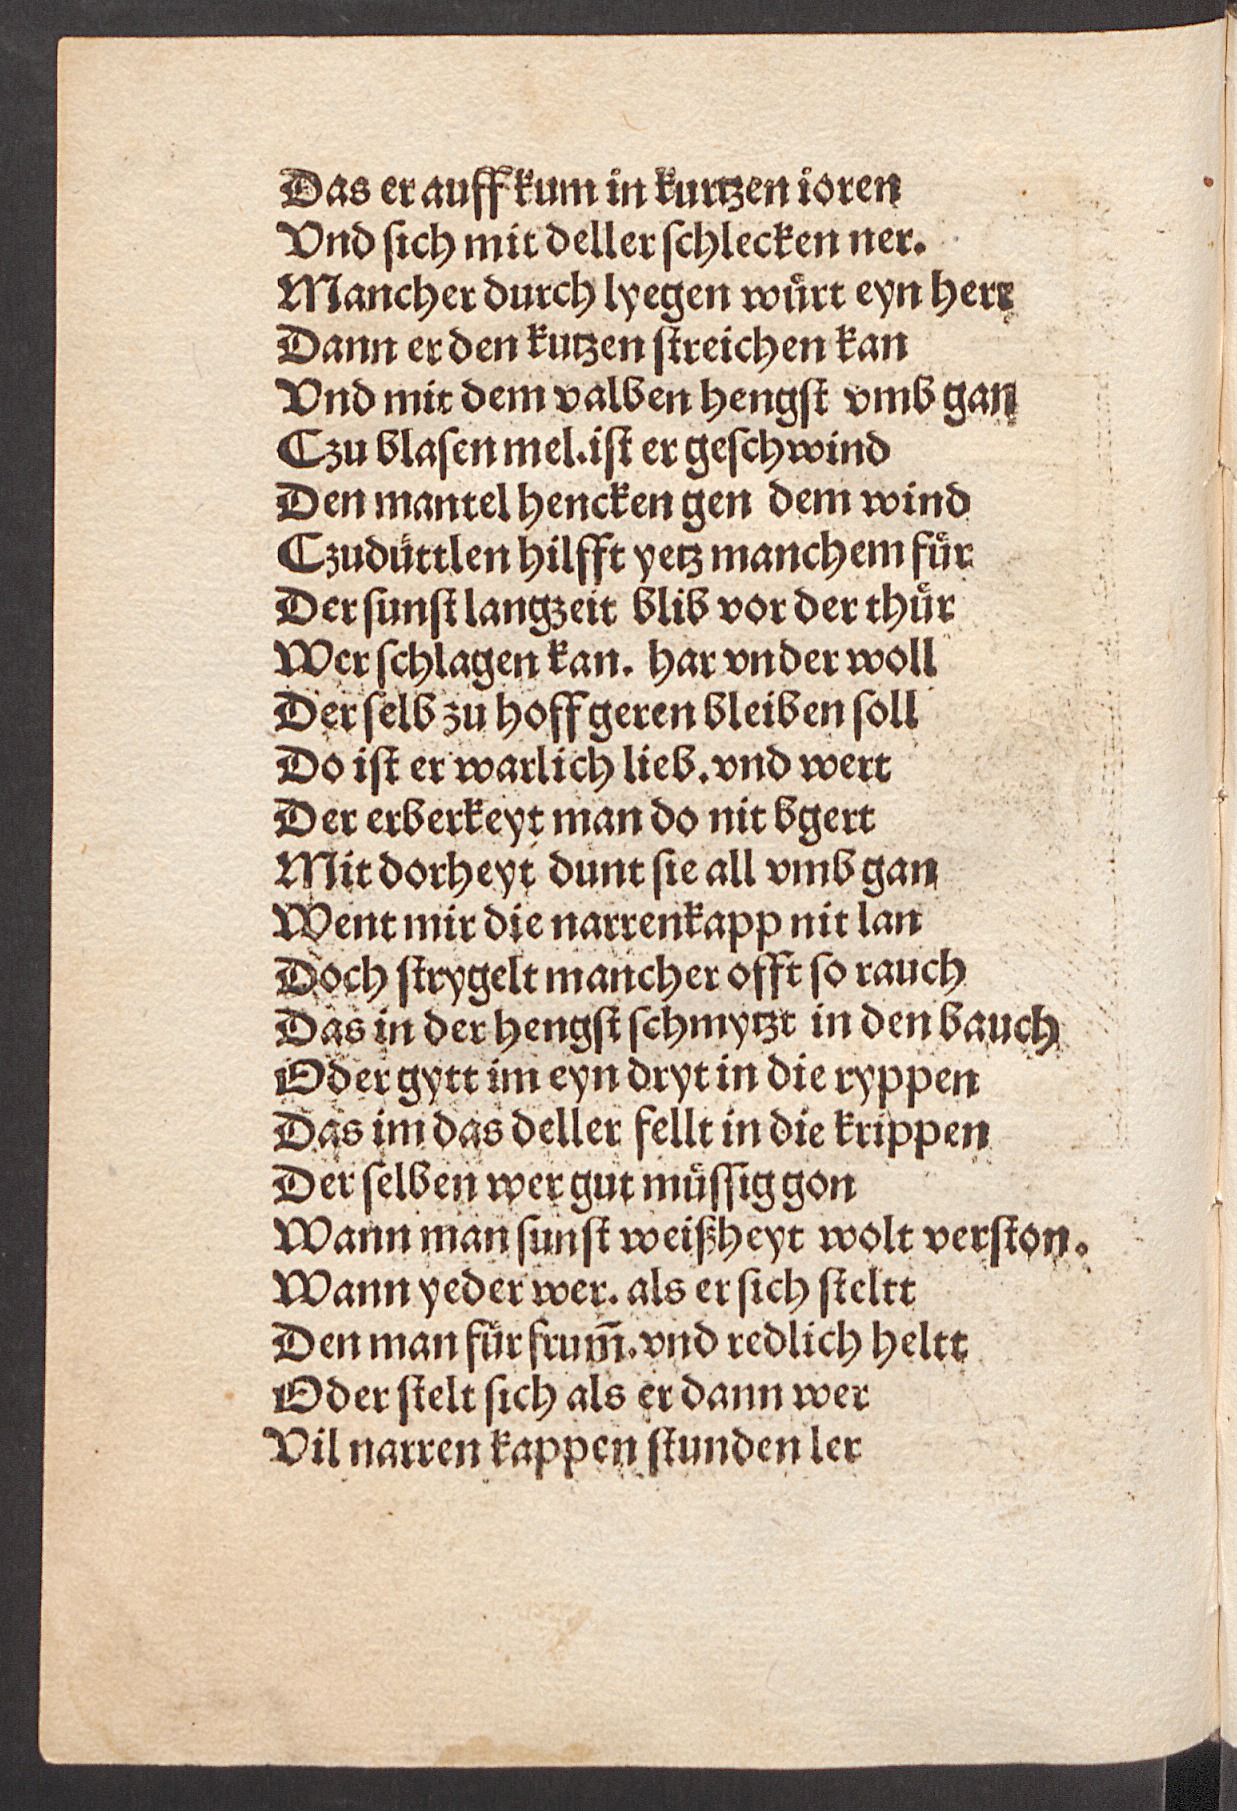 Das er auff kum in kurtzen ioren
Vnd sich mit deller schlecken ner.
Mancher durch lyegen wuͤrt eyn herr
Dann er den kutzen streichen kan
Vnd mit dem valben hengst vmb gan
Czu blasen mel. ist er geschwind
Den mantel hencken gen dem wind
Czuduͤttlen hilfft yetz manchem fuͤr
Der sunst langzeit blib vor der thuͤr
Wer schlagen kan. har vnder woll
Der selb zu hoff geren bleiben soll
Do ist er warlich lieb. vnd wert
Der erberkeyt man do nit bgert
Mit dorheyt dunt sie all vmb gan
Went mir die narrenkapp nit lan
Doch strygelt mancher offt so rauch
Das in der hengst schmytzt in den bauch
Oder gytt im eyn dryt in die ryppen
Das im das deller fellt in die krippen
Der selben wer gut muͤssig gon
Wann man sunst weißheyt wolt verston.
Wann yeder wer. als er sich steltt
Den man fuͤr frum̄. vnd redlich heltt
Oder stelt sich als er dann wer
Vil narren kappen stunden ler